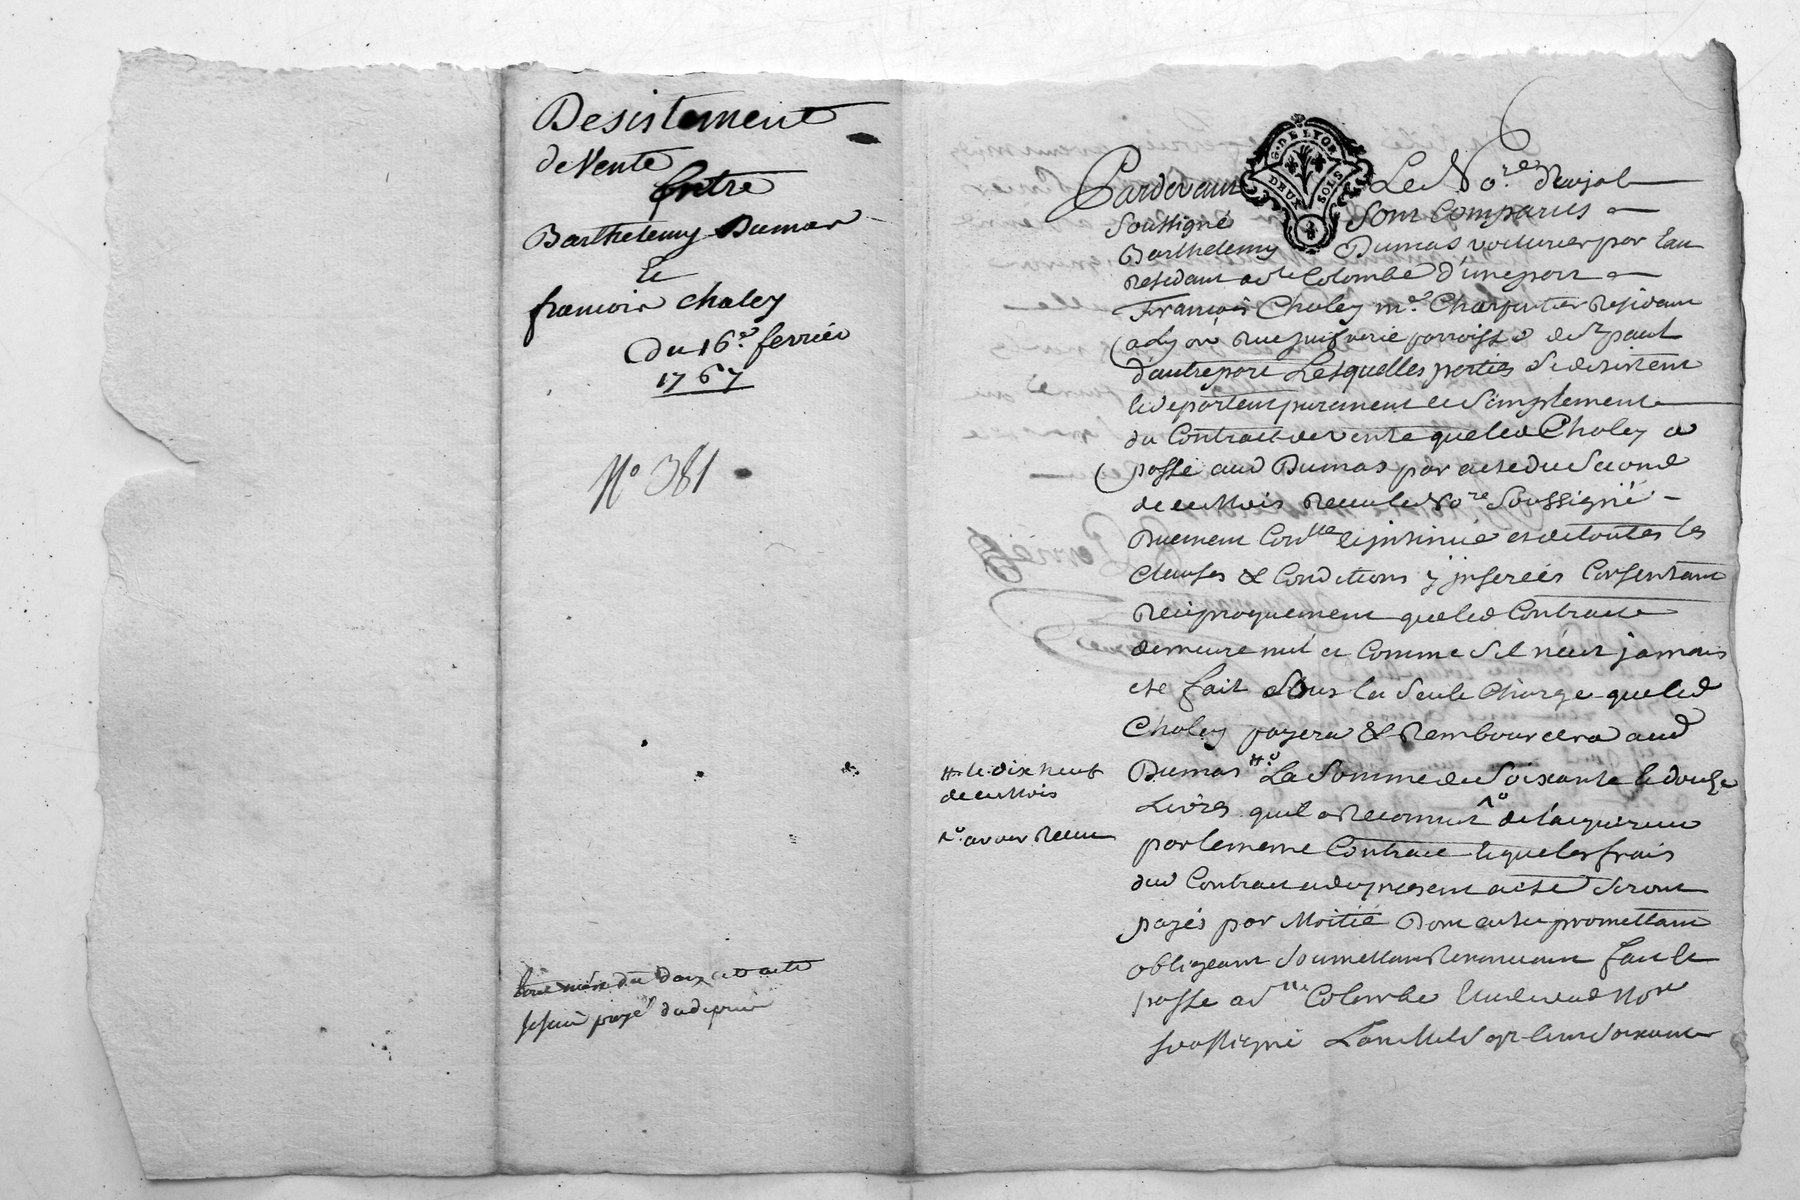 Desistement
de Vente
Entre
Barthelemy Dumas
Et
francois chaley
Du 16e. fevrier
1767
No 381
G. DE LYON
DEUX SOLS
Pardevant Le Nore. Royal
Soussigné Sont Comparus
Barthelemy Dumas voiturier par Eau
Residant a ste Colombe d'une part
Francois Chaley me. Charpentier Residant
a Lyon Rue juifverie parroisse de st paul
d'autre part Lesquelles parties se desistent
& departent purement et Simplement
du Contract de vente que led Chaley a
passé aud Dumas par acte du Second
de ce Mois Receu le Nore Soussigné
Duement Conllé et jnsinué et de toutes les
Clauses & Conditions y jnserées Consentant
Reciproquement que led Contract
demeure nul et Comme S'il n'eut jamais
eté fait Sous la Seule Charge que led
Chaley payera & Rembourcera aud
Dumas La Somme de Soixante et douze
Livres quil a Reconnut de l'acquereur
par le meme Contract et que les frais
dud Contract et du present acte Seront
payés par Moitié Dont acte promettant
obligeant Soumettant Renonceant fait et
passé a ste Colombe Etude dud Nore
soussigné L'an Mil Sept Cent Soixante
le dix neuf
de ce Mois
avoir Receu